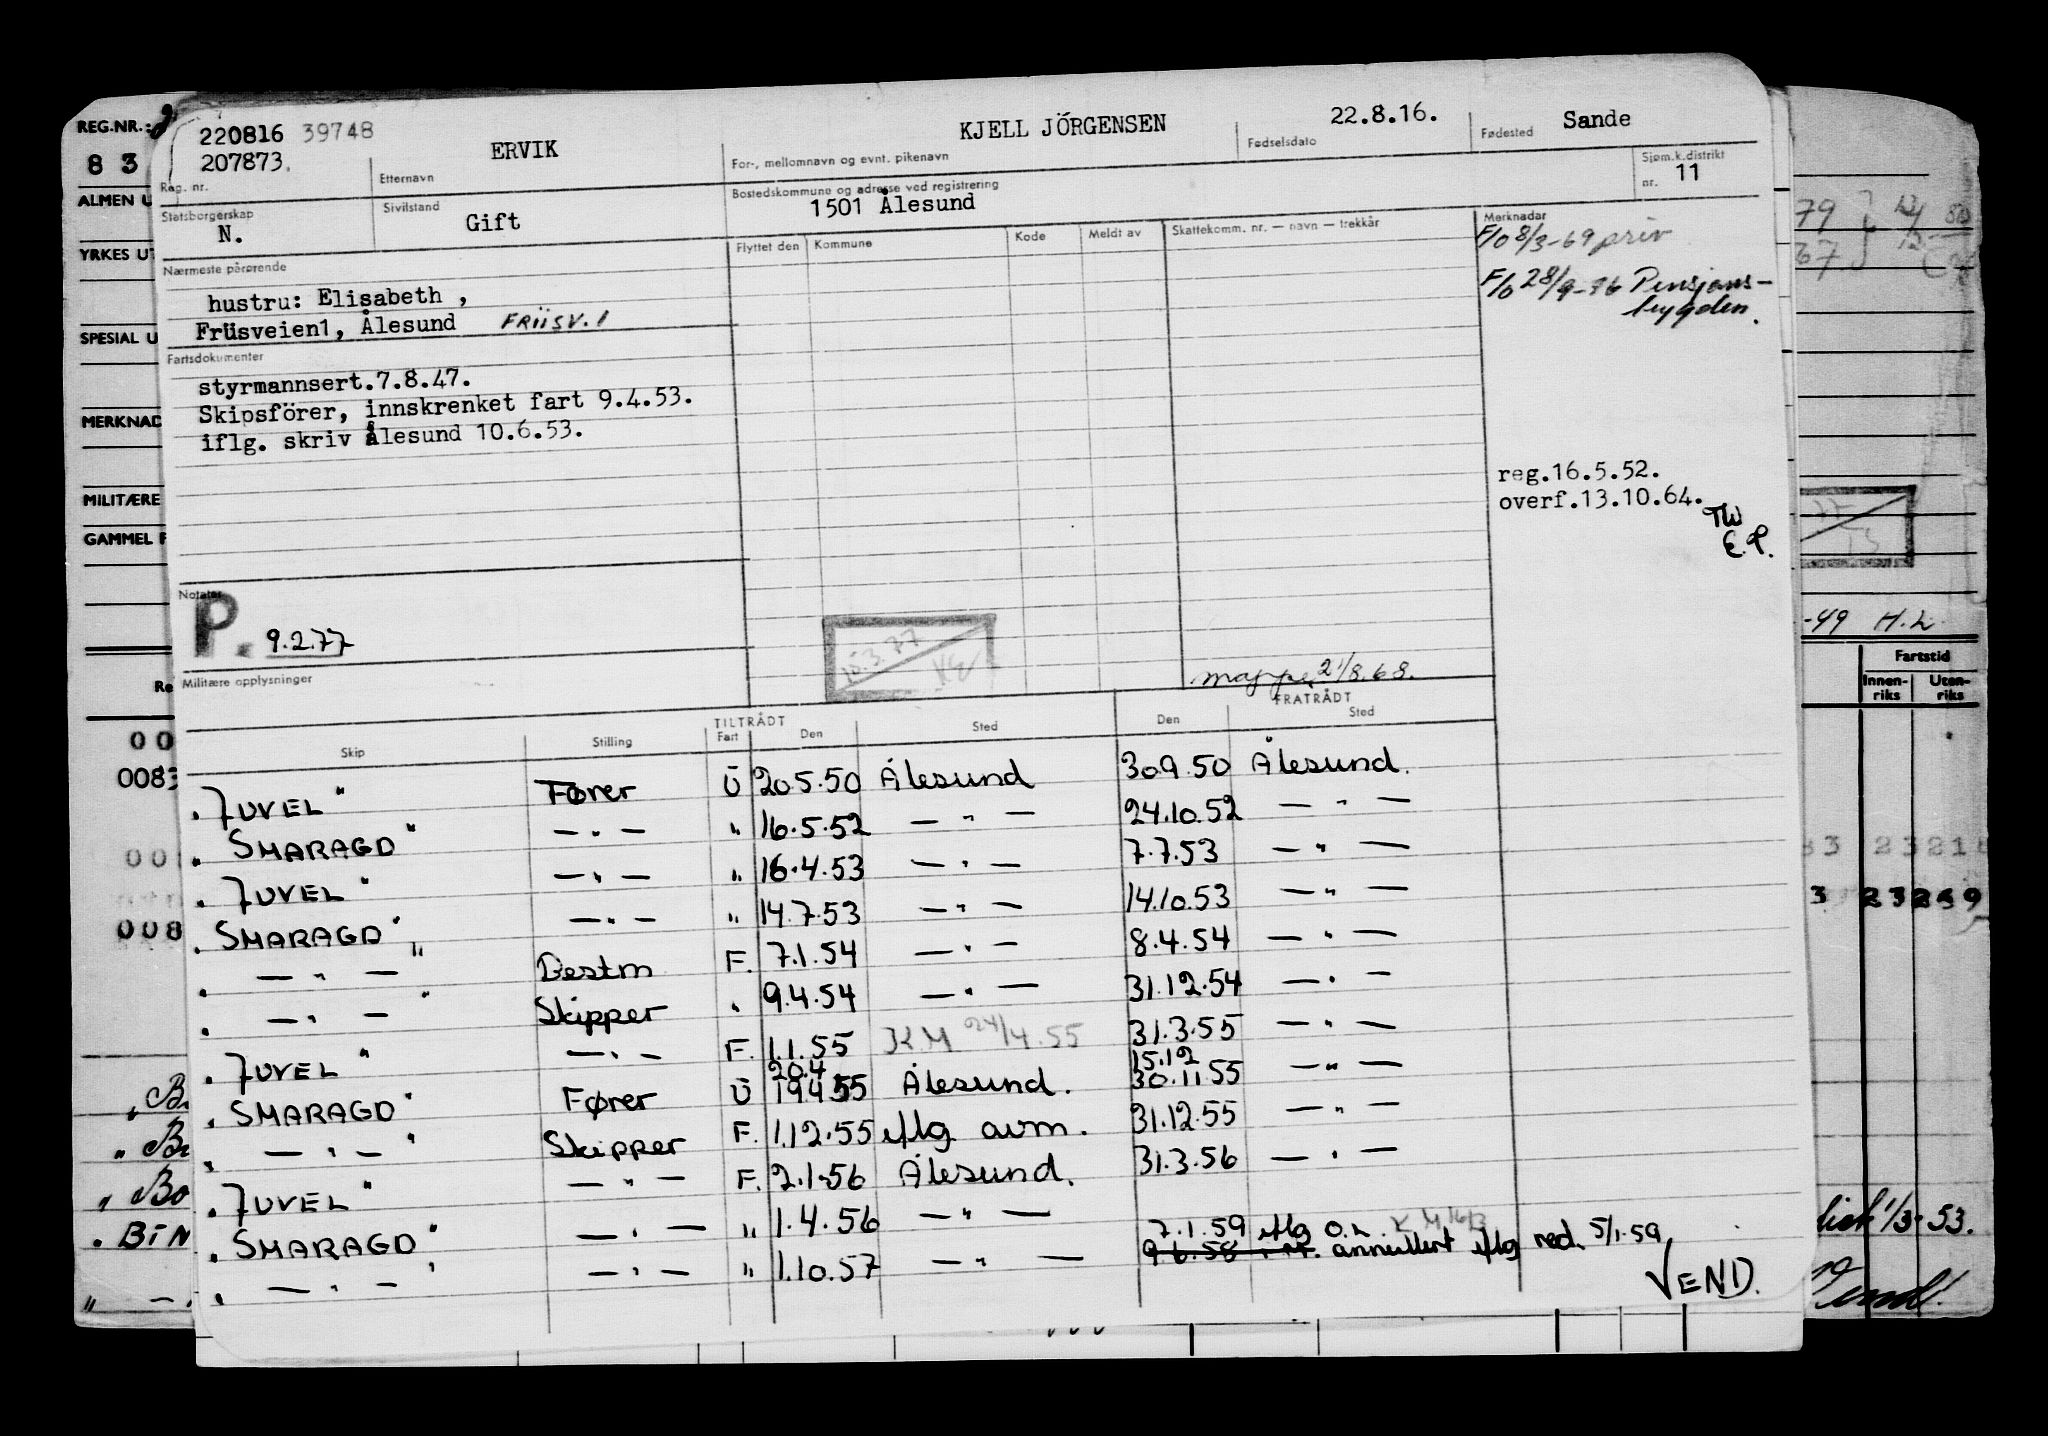 REG.NR.:
8 3
ALMEN U
YRKES UT
SPESIAL U
MERKNAD
MILITÆRE
GAMMEL F
220816 39748
207873.
Reg. nr.
ERVIK
Etternavn
KJELL JÖRGENSEN
For-, mellomnavn og evnt. pikenavn
22.8.16.
Fødselsdato
Sande
Fødested
Statsborgerskap
N.
Sivilstand
Gift
Bostedskommune og adresse ved registrering
1501 Ålesund
Sjøm.k.distrikt
nr. 11
Nærmeste pårørende
hustru: Elisabeth ,
Früsveien1, Ålesund FRIISV. 1
Flyttet den Kommune Kode Meldt av Skattekomm. nr. — navn — trekkår
Merknader
F/o 8/3-69 priv
F/o 28/9-76 Pensjons-
trygden.
Fartsdokumenter
styrmannsert.7.8.47.
Skipsförer, innskrenket fart 9.4.53.
iflg. skriv Ålesund 10.6.53.
reg.16.5.52.
overf.13.10.64.
TW
E.P.
Notater
P. 9.2.77
15.3.77
Militære opplysninger
mappe 21/8.68.
TILTRÅDT FRATRÅDT
Skip Stilling Fart Den Sted Den Sted
"JUVEL" Fører U 20.5.50 Ålesund 30.9.50 Ålesund.
"SMARAGD" — " — " 16.5.52 — " — 24.10.52 — " —
"JUVEL" — " — " 16.4.53 — " — 7.7.53 — " —
"SMARAGD" — " — " 14.7.53 — " — 14.10.53 — " —
" — " — " Bestm F. 7.1.54 — " — 8.4.54 — " —
" — " — " Skipper " 9.4.54 — " — 31.12.54 — " —
"JUVEL" — " — F. 1.1.55 K.M 24/4.55 31.3.55 — " —
20.4 15.12
"SMARAGD" Fører U 19.4.55 Ålesund. 30.11.55 — " —
" — " — " Skipper F. 1.12.55 iflg avm. 31.12.55 — " —
"JUVEL" — " — F. 2.1.56 Ålesund. 31.3.56 — " —
"SMARAGD" — " — " 1.4.56 — " —
7.1.59 iflg O.L. K.M 16/3
" — " — " — " — " 1.10.57 — " — 9.6.58 annullert iflg red. 5/1.59
VEND.
-49 H.L.
Fartstid
Innen-
riks
Uten-
riks
3 23269
1/3-53.
Vend!